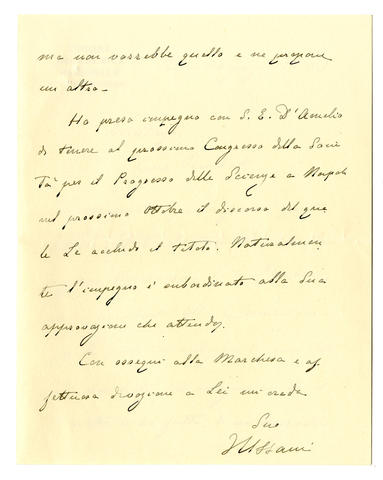 ma non vorrebbe quello e ne propone
un altro.
Ho preso impegno con S. E. D'Amelio
di tenere al prossimo Congresso della Socie
tà per il Progresso delle Scienze a Napoli
nel prossimo Ottobre il discorso del qua
le Le accludo il titolo. Naturalmen
te l'impegno è subordinato alla Sua
approvazione che attendo.
Con ossequi alla Marchesa e af
fettuosa devozione a Lei mi creda
Suo